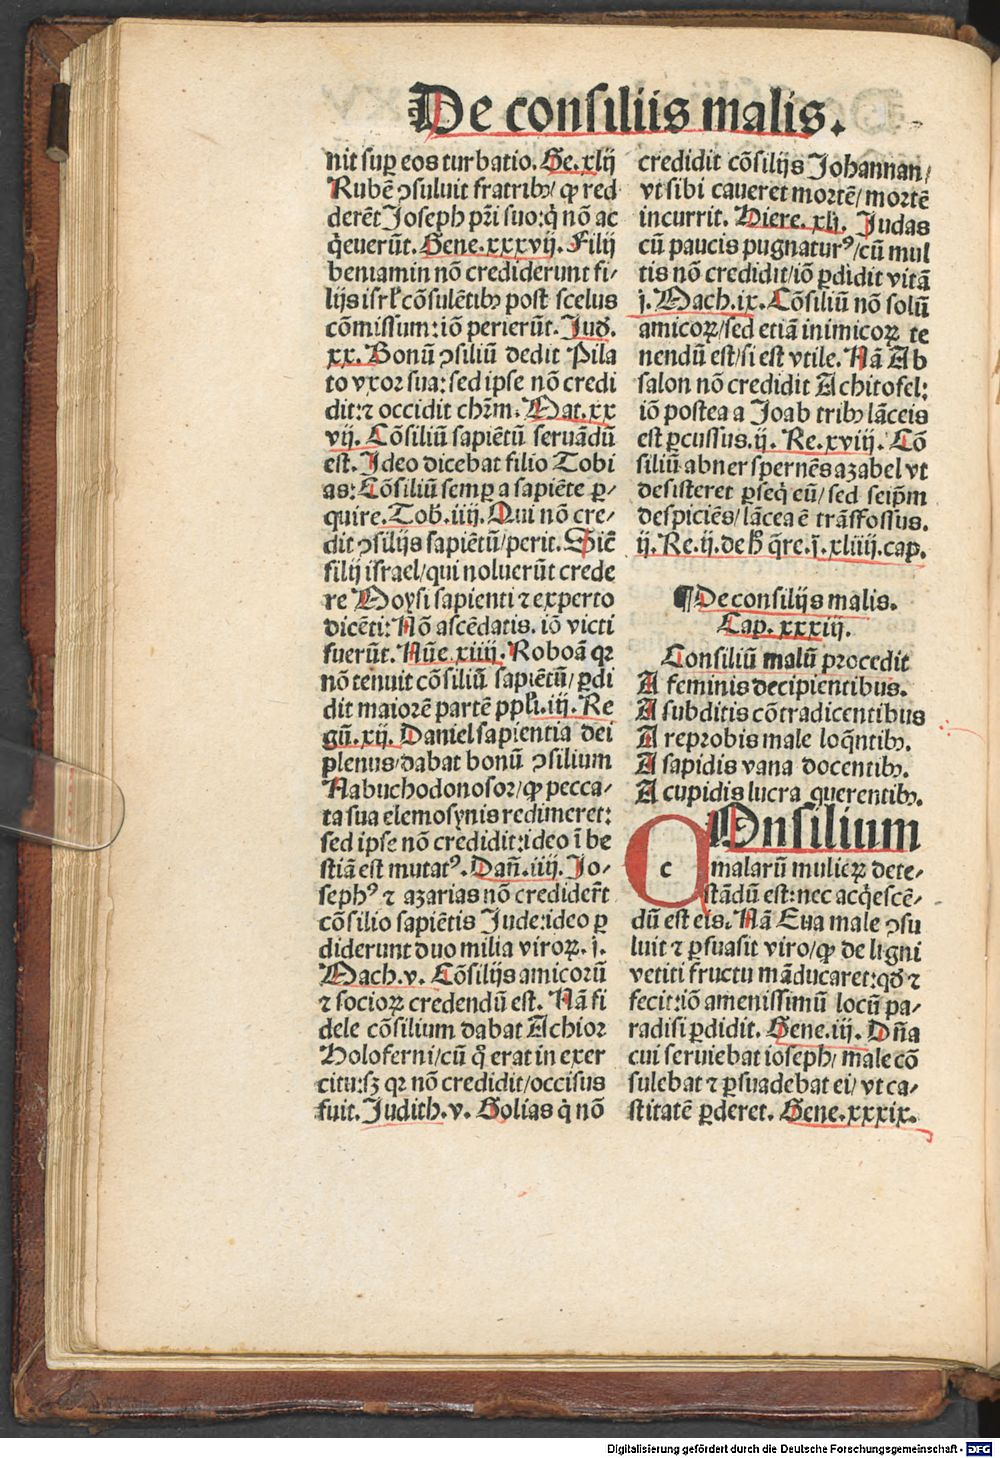 De consiliis malis.
nit suꝑ eos turbatio. Ge. xlij
Rubē ꝯsuluit fratribꝫ/ ꝙ red
derēt Joseph pr̄i suo: q̇ nō ac
q̇euerūt. Gene. xxxvij. Filij
beniamin nō crediderunt fi⸗
lijs isrl̓ cōsulētibꝫ post scelus
cōmissum: iō perierūt. Jud.
xx. Bonū ꝯsiliū dedit Pila
to vxor sua: sed ipse nō credi
dit: ⁊ occidit chr̄m. Mat. xx
vij. Cōsiliū sapiētū seruādū
est. Ideo dicebat filio Tobi
as: Cōsiliū semꝑ a sapiēte ꝑ⸗
quire. Tob. iiij. Qui nō cre⸗
dit ꝯsilijs sapiētū/ perit. Sic̄
filij israel/ qui noluerūt crede
re Moysi sapienti ⁊ experto
dicēti: Nō ascēdatis. iō victi
fuerūt. Nūe. xiiij. Roboā qꝛ
nō tenuit cōsiliū sapiētū/ ꝑdi
dit maiorē partē ppl̓i. iij. Re
gū. xij. Daniel sapientia dei
plenus/ dabat bonū ꝯsilium
Nabuchodonosor/ ꝙ pecca⸗
ta sua elemosynis redimeret:
sed ipse nō credidit: ideo ī be
stiā est mutatꝰ. Dañ. iiij. Jo⸗
sephꝰ ⁊ azarias nō crediderūt
cōsilio sapiētis Jude: ideo ꝑ
diderunt duo milia viroꝝ. j.
Mach. v. Cōsilijs amicorū
⁊ socioꝝ credendū est. Nā fi
dele cōsilium dabat Achior
Holoferni/ cū q̇ erat in exer
citu: sꝫ qꝛ nō credidit/ occisus
fuit. Judith. v. Golias q̇ nō
credidit cōsilijs Johannan/
vt sibi caueret mortē/ mortē
incurrit. Hiere. xlj. Judas
cū paucis pugnaturꝰ/ cū mul
tis nō credidit/ iō ꝑdidit vitā
j. Mach. ix. Cōsiliū nō solū
amicoꝝ/ sed etiā inimicoꝝ te
nendū est/ si est vtile. Nā Ab
salon nō credidit Achitofel:
iō postea a Joab tribꝫ lāceis
est ꝑcussus. ij. Re. xviij. Cō
siliū abner spernēs azabel vt
desisteret ꝑseq̇ eū/ sed seip̄m
despiciēs/ lācea ē trāsfossus.
ij. Re. ij. de h̓ q̄re. j. xliiij. cap.
¶De consilijs malis.
Cap. xxxiij.
Consiliū malū procedit
A feminis decipientibus.
A subditis cōtradicentibus
A reprobis male loq̄ntibꝫ.
A sapidis vana docentibꝫ.
A cupidis lucra querentibꝫ.
c Onsilium
malarū mulieꝝ dete⸗
stādū est: nec acq̇escē⸗
dū est eis. Nā Eua male ꝯsu
luit ⁊ ꝑsuasit viro/ ꝙ de ligni
vetiti fructu māducaret: qd̓ ⁊
fecit: iō amenissimū locū pa⸗
radisi ꝑdidit. Gene. iij. Dn̄a
cui seruiebat ioseph/ male cō
sulebat ⁊ ꝑsuadebat ei/ vt ca⸗
stitatē ꝑderet. Gene. xxxix.
Digitalisierung gefördert durch die Deutsche Forschungsgemeinschaft - DFG